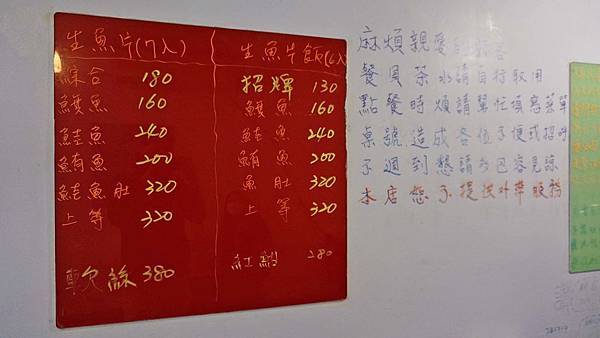 生魚片(7入)
綜合 180
鰻魚 160
鮭魚 240
鮪魚 200
鮭魚肚 320
上等 320
軟絲 380
生魚片飯(6入)
招牌 130
鰻魚 160
鮭魚 240
鮪魚 200
魚肚 320
上等 320
紅鮒 280
麻煩親愛
餐具茶水請自行取用
點餐時煩請幫忙填寫菜單
桌號造成各位不便或招呼
不週到懇請多包容見諒
本店恕不提供外帶服務